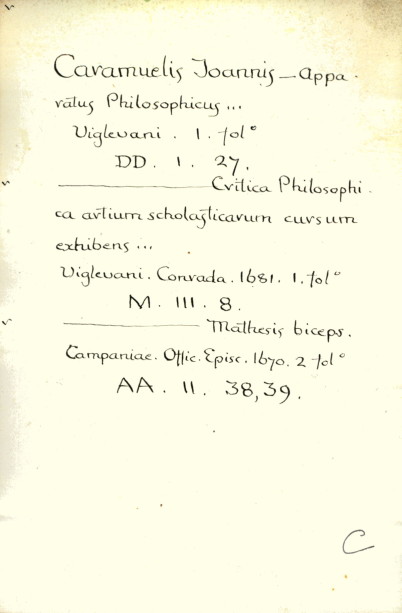 Caramuelis Joannis — Appa.
ratus Philosophicus ...
Viglevani . 1. folº
DD . 1 . 27.
——— Critica Philosophi.
ca artium scholasticarum cursum
exhibens ...
Viglevani. Conrada. 1681. 1. folº
M . III . 8.
——— Mathesis biceps.
Campaniae. Offic. Episc. 1670. 2 folº
AA . II . 38, 39.
C